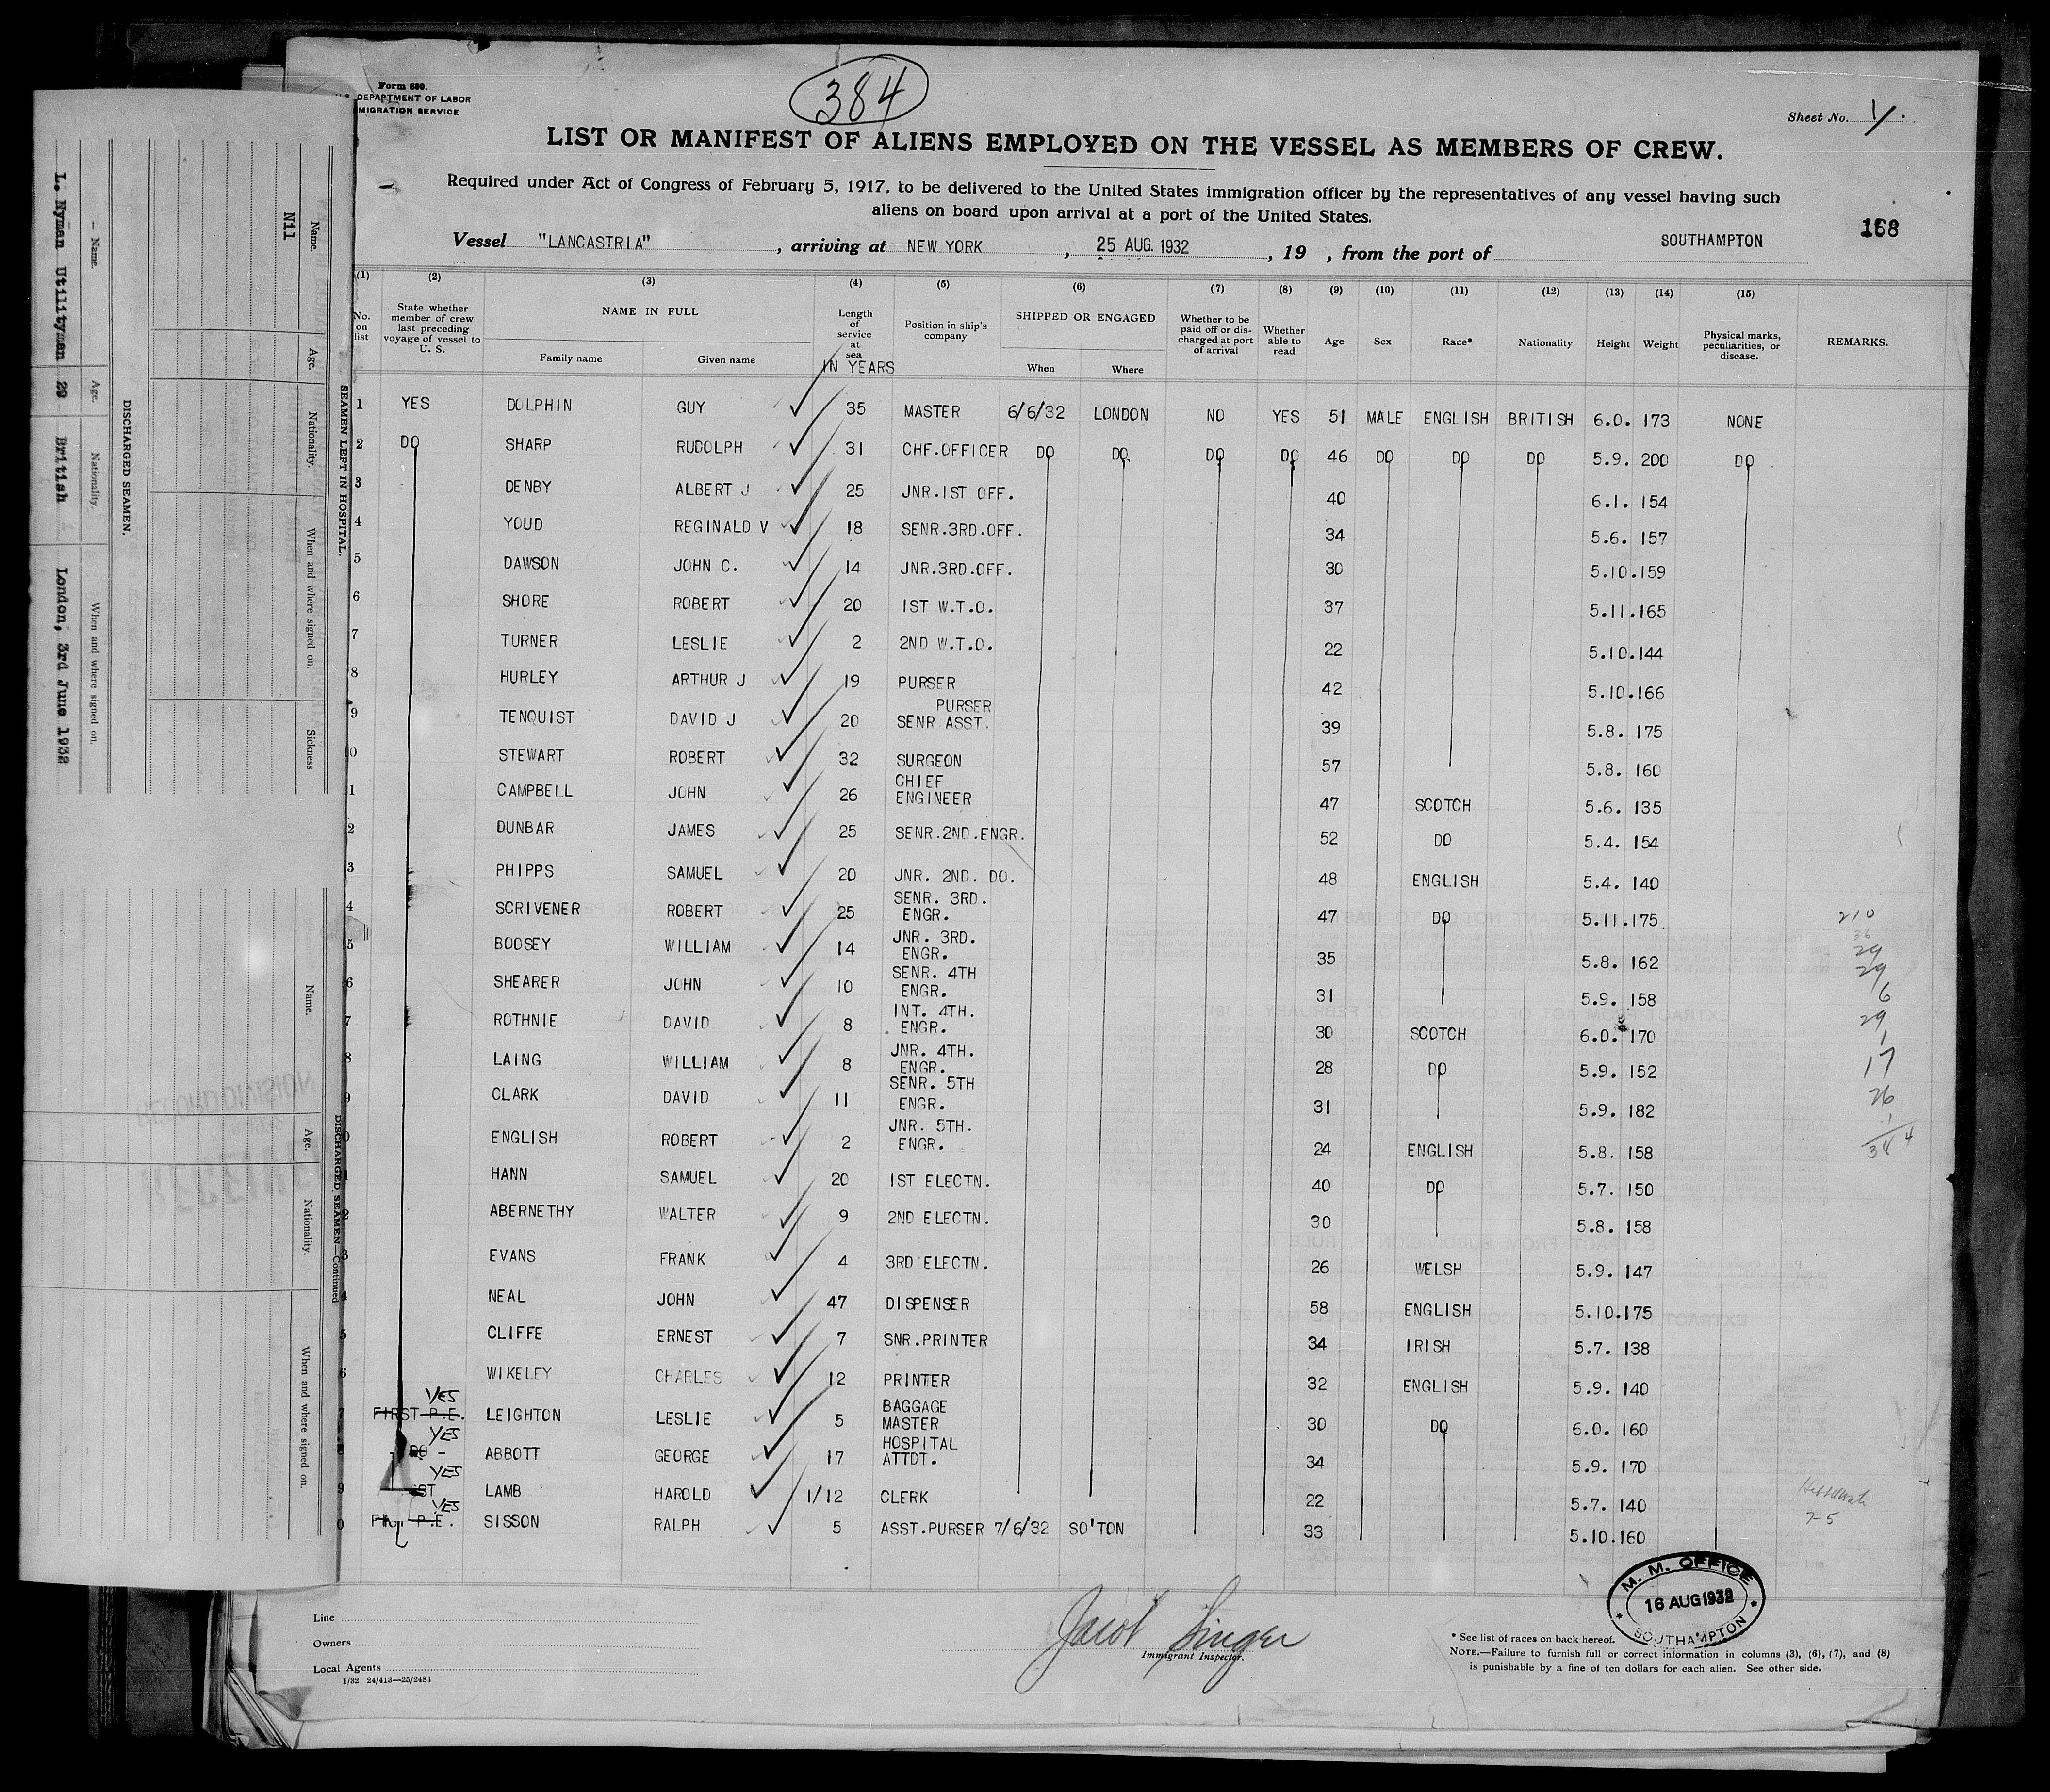 Form 680.
U.S. DEPARTMENT OF LABOR
IMMIGRATION SERVICE
384
Sheet No. 1
LIST OR MANIFEST OF ALIENS EMPLOYED ON THE VESSEL AS MEMBERS OF CREW.
Required under Act of Congress of February 5, 1917, to be delivered to the United States immigration officer by the representatives of any vessel having such
aliens on board upon arrival at a port of the United States.
168
Vessel "LANCASTRIA", arriving at NEW YORK, 25 AUG. 1932, 19 , from the port of SOUTHAMPTON
(1) (2) (3) (4) (5) (6) (7) (8) (9) (10) (11) (12) (13) (14) (15)
No. on list
State whether member of crew last preceding voyage of vessel to U. S.
NAME IN FULL
Family name
Given name
Length of service at sea
IN YEARS
Position in ship's company
SHIPPED OR ENGAGED
When
Where
Whether to be paid off or discharged at port of arrival
Whether able to read
Age
Sex
Race*
Nationality
Height
Weight
Physical marks, peculiarities, or disease.
REMARKS.
1 YES DOLPHIN GUY 35 MASTER 6/6/32 LONDON NO YES 51 MALE ENGLISH BRITISH 6.0. 173 NONE
2 DO SHARP RUDOLPH 31 CHF.OFFICER DO DO. DO DO 46 DO DO DO 5.9. 200 DO
3 DENBY ALBERT J 25 JNR.1ST OFF. 40 6.1. 154
4 YOUD REGINALD V 18 SENR.3RD.OFF. 34 5.6. 157
5 DAWSON JOHN C. 14 JNR.3RD.OFF. 30 5.10.159
6 SHORE ROBERT 20 1ST W.T.O. 37 5.11.165
7 TURNER LESLIE 2 2ND W.T.O. 22 5.10.144
8 HURLEY ARTHUR J 19 PURSER 42 5.10.166
9 TENQUIST DAVID J 20 PURSER SENR ASST. 39 5.8. 175
0 STEWART ROBERT 32 SURGEON 57 5.8. 160
1 CAMPBELL JOHN 26 CHIEF ENGINEER 47 SCOTCH 5.6. 135
2 DUNBAR JAMES 25 SENR.2ND.ENGR. 52 DO 5.4. 154
3 PHIPPS SAMUEL 20 JNR. 2ND. DO. 48 ENGLISH 5.4. 140
4 SCRIVENER ROBERT 25 SENR. 3RD. ENGR. 47 DO 5.11.175 210
36
5 BOOSEY WILLIAM 14 JNR. 3RD. ENGR. 35 5.8. 162 29
29
6 SHEARER JOHN 10 SENR. 4TH ENGR. 31 5.9. 158 6
7 ROTHNIE DAVID 8 INT. 4TH. ENGR. 30 SCOTCH 6.0. 170 29
1
8 LAING WILLIAM 8 JNR. 4TH. ENGR. 28 DO 5.9. 152 17
9 CLARK DAVID 11 SENR. 5TH ENGR. 31 5.9. 182 26
1
0 ENGLISH ROBERT 2 JNR. 5TH. ENGR. 24 ENGLISH 5.8. 158 384
1 HANN SAMUEL 20 1ST ELECTN. 40 DO 5.7. 150
2 ABERNETHY WALTER 9 2ND ELECTN. 30 5.8. 158
3 EVANS FRANK 4 3RD ELECTN. 26 WELSH 5.9. 147
4 NEAL JOHN 47 DISPENSER 58 ENGLISH 5.10.175
5 CLIFFE ERNEST 7 SNR.PRINTER 34 IRISH 5.7. 138
6 WIKELEY CHARLES 12 PRINTER 32 ENGLISH 5.9. 140
YES
7 FIRST P.E. LEIGHTON LESLIE 5 BAGGAGE MASTER 30 DO 6.0. 160
YES
8 - DO - ABBOTT GEORGE 17 HOSPITAL ATTDT. 34 5.9. 170
YES
9 ST LAMB HAROLD 1/12 CLERK 22 5.7. 140
YES
0 P.E. SISSON RALPH 5 ASST.PURSER 7/6/32 SO'TON 33 5.10.160
7-5
M. M. OFFICE
16 AUG 1932
SOUTHAMPTON
Line
Owners
Local Agents
1/32 24/413—25/2484
Jacob Singer
Immigrant Inspector.
* See list of races on back hereof.
NOTE.—Failure to furnish full or correct information in columns (3), (6), (7), and (8)
is punishable by a fine of ten dollars for each alien. See other side.
SEAMEN LEFT IN HOSPITAL.
Name. Age. Nationality. When and where signed on. Sickness
Nil
DISCHARGED SEAMEN.
Name. Age. Nationality. When and where signed on.
L. Nyman Utilityman 29 British London, 3rd June 1932
DISCHARGED SEAMEN—Continued
Name. Age. Nationality. When and where signed on.